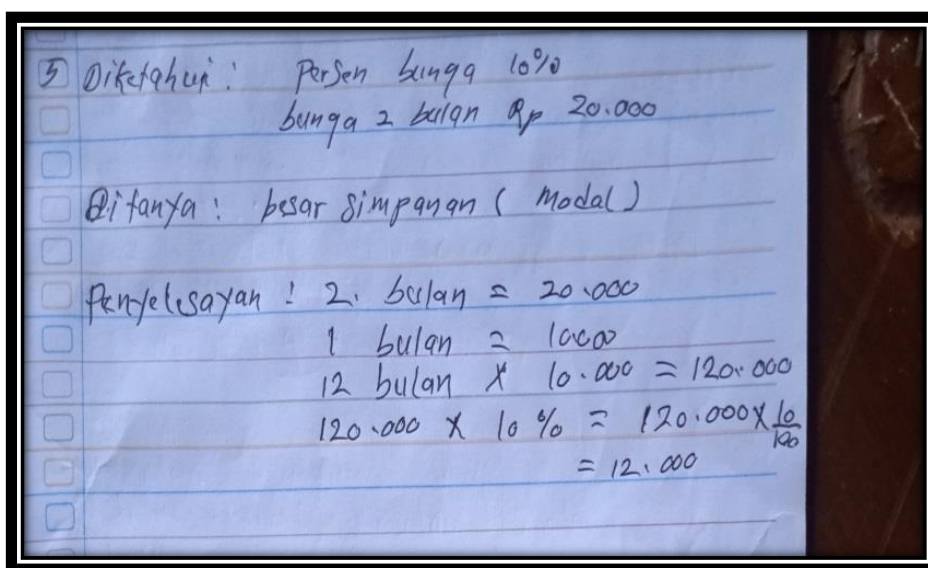 5 Diketahui : Persen bunga 10%
bunga 2 bulan Rp 20.000
Ditanya : besar Simpanan ( Modal )
Penyelesayan : 2. bulan = 20.000
1 bulan = 10000
12 bulan x 10.000 = 120.000
120.000 x 10% = 120.000 x 10/100
= 12.000